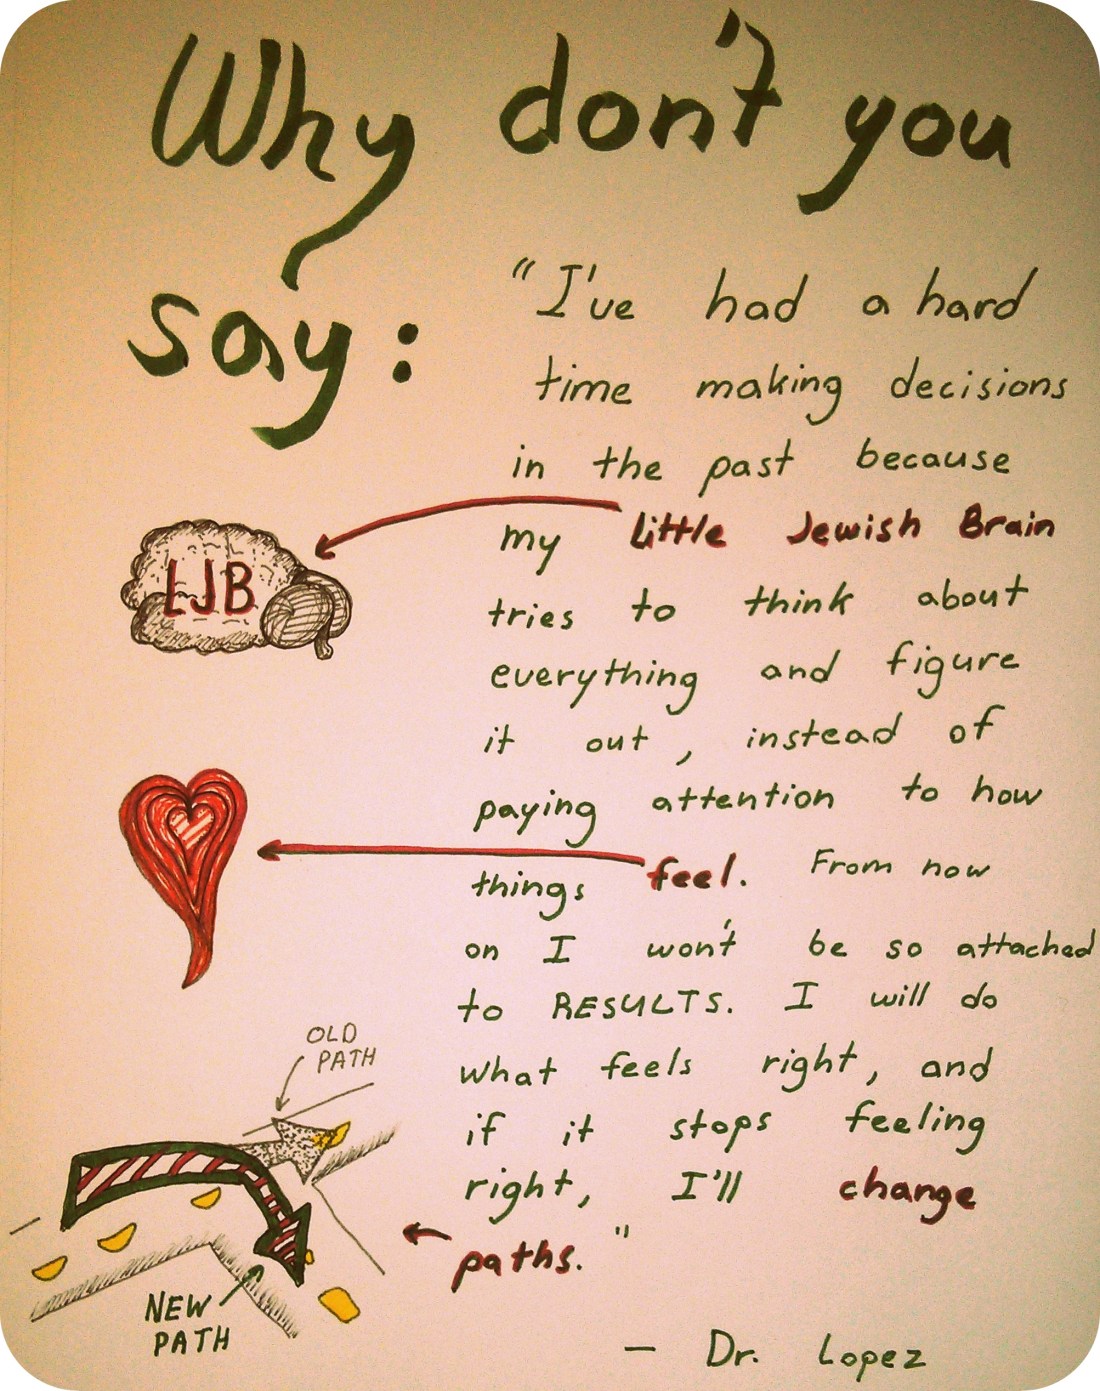 Why don't you
say:
"I've had a hard
time making decisions
in the past because
my little Jewish Brain
tries to think about
everything and figure
it out, instead of
paying attention to how
things feel. From now
on I won't be so attached
to RESULTS. I will do
what feels right, and
if it stops feeling
right, I'll change
paths."
— Dr. Lopez
LJB
OLD
PATH
NEW
PATH